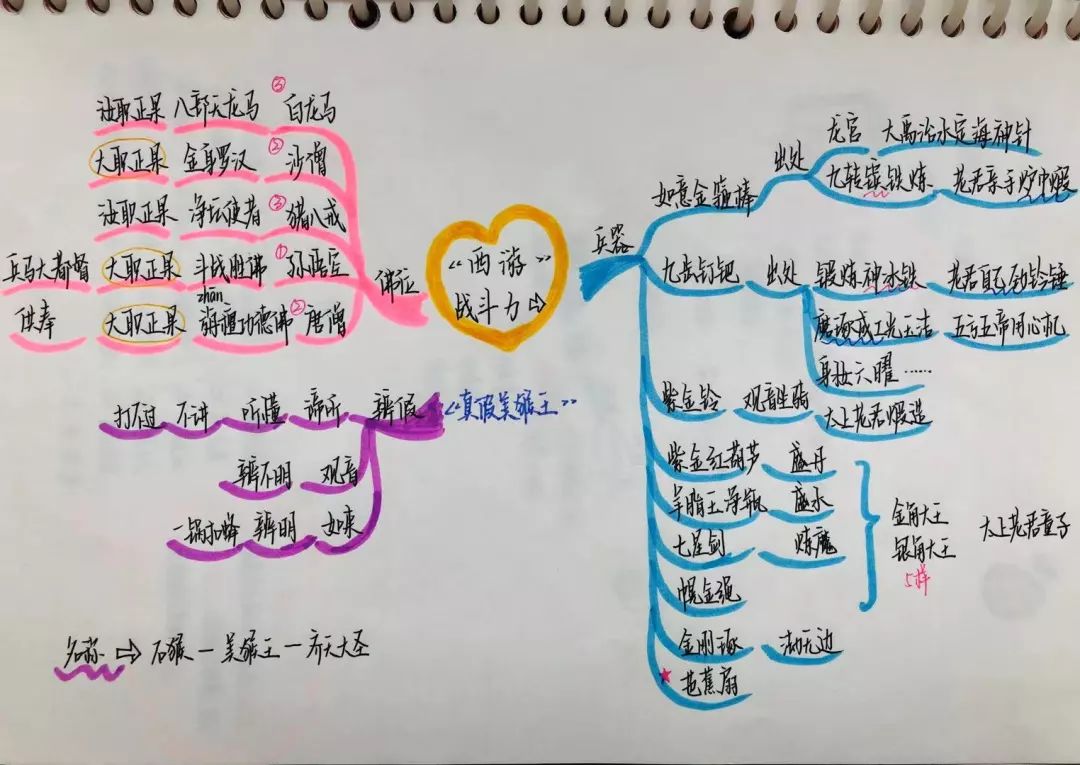 “西游”
战斗力⇨
佛位
③
汝取正果 八部天龙马 白龙马
②
大取正果 金身罗汉 沙僧
③
汝取正果 净坛使者 猪八戒
①
兵马大都督 大取正果 斗战胜佛 孙悟空
zhān
②
供奉 大取正果 旃檀功德佛 唐僧
“真假美猴王”
打不过 不讲 听懂 谛听 辨假
辨不明 观音
一锅扣蜂 辨明 如来
名称 ⇨ 石猴一美猴王一齐天大圣
兵器
如意金箍棒 出处 龙宫 大禹治水定海神针
九转镔铁炼 老君亲手炉中煅
九齿钉钯 出处 锻炼神冰铁 老君自己动钤锤
磨琢成工光皎洁 五方五帝用心机
身妆六曜……
紫金铃 观音坐骑 太上老君煅造
紫金红葫芦 盛丹
羊脂玉净瓶 盛水
七星剑 炼魔
幌金绳
金角大王
银角大王
5样
太上老君童子
金刚琢 法无边
★芭蕉扇